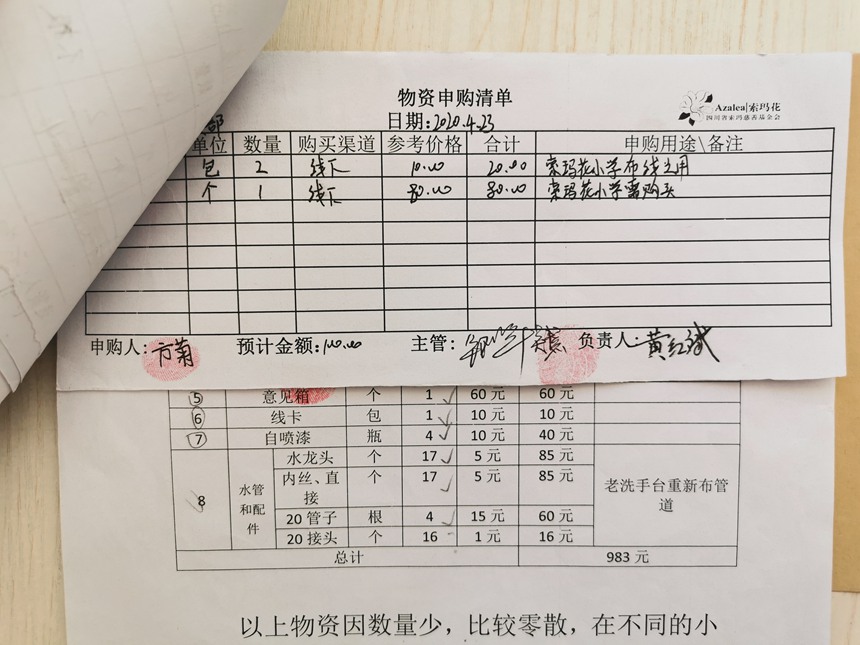 物资申购清单
Azalea|索玛花
四川省索玛慈善基金会
部
日期:2020.4.23
单位 数量 购买渠道 参考价格 合计 申购用途\备注
包 2 线下 10.00 20.00 索玛花小学布线之用
个 1 线下 80.00 80.00 索玛花小学需购买
申购人: 预计金额:100.00 主管: 负责人: 黄红斌
5 意见箱 个 1 60元 60元
6 线卡 包 1 10元 10元
7 自喷漆 瓶 4 10元 40元
8 水管和配件 水龙头 个 17 5元 85元 老洗手台重新布管道
内丝、直接 个 17 5元 85元
20管子 根 4 15元 60元
20接头 个 16 1元 16元
总计 983元
以上物资因数量少，比较零散，在不同的小